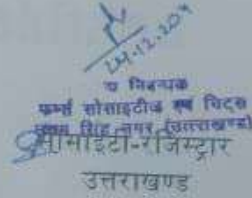 24.12.201
निबन्धक
फर्म्स सोसाइटीज एवं चिट्स
सिंह नगर (उत्तराखण्ड)
सोसाइटी-रजिस्ट्रार
उत्तराखण्ड